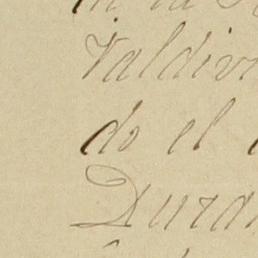 en la
Valdivi
do el
Duran